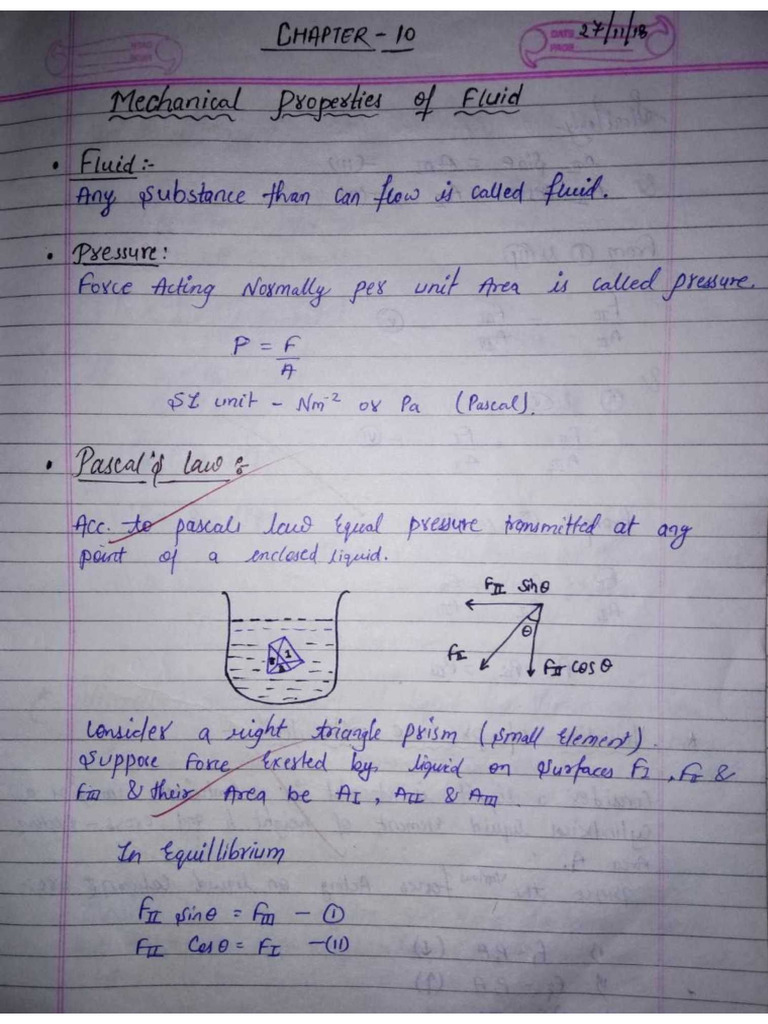 CHAPTER - 10
DATE 27/11/18
PAGE
Mechanical Properties of Fluid
• Fluid :-
Any substance than can flow is called fluid.
• Pressure :
Force Acting Normally per unit Area is called pressure.
P = F
A
SI unit - Nm⁻² or Pa (Pascal).
• Pascal's law :-
Acc. to pascals law Equal pressure transmitted at any
point of a enclosed liquid.
F_II sinθ
θ
1
F_I
F_II cosθ
Consider a right triangle prism (small Element).
Suppose Force Exerted by liquid on surfaces F_I, F_II &
F_III & their Area be A_I, A_II & A_III.
In Equillibrium
F_II sinθ = F_III - (I)
F_II Cosθ = F_I - (II)